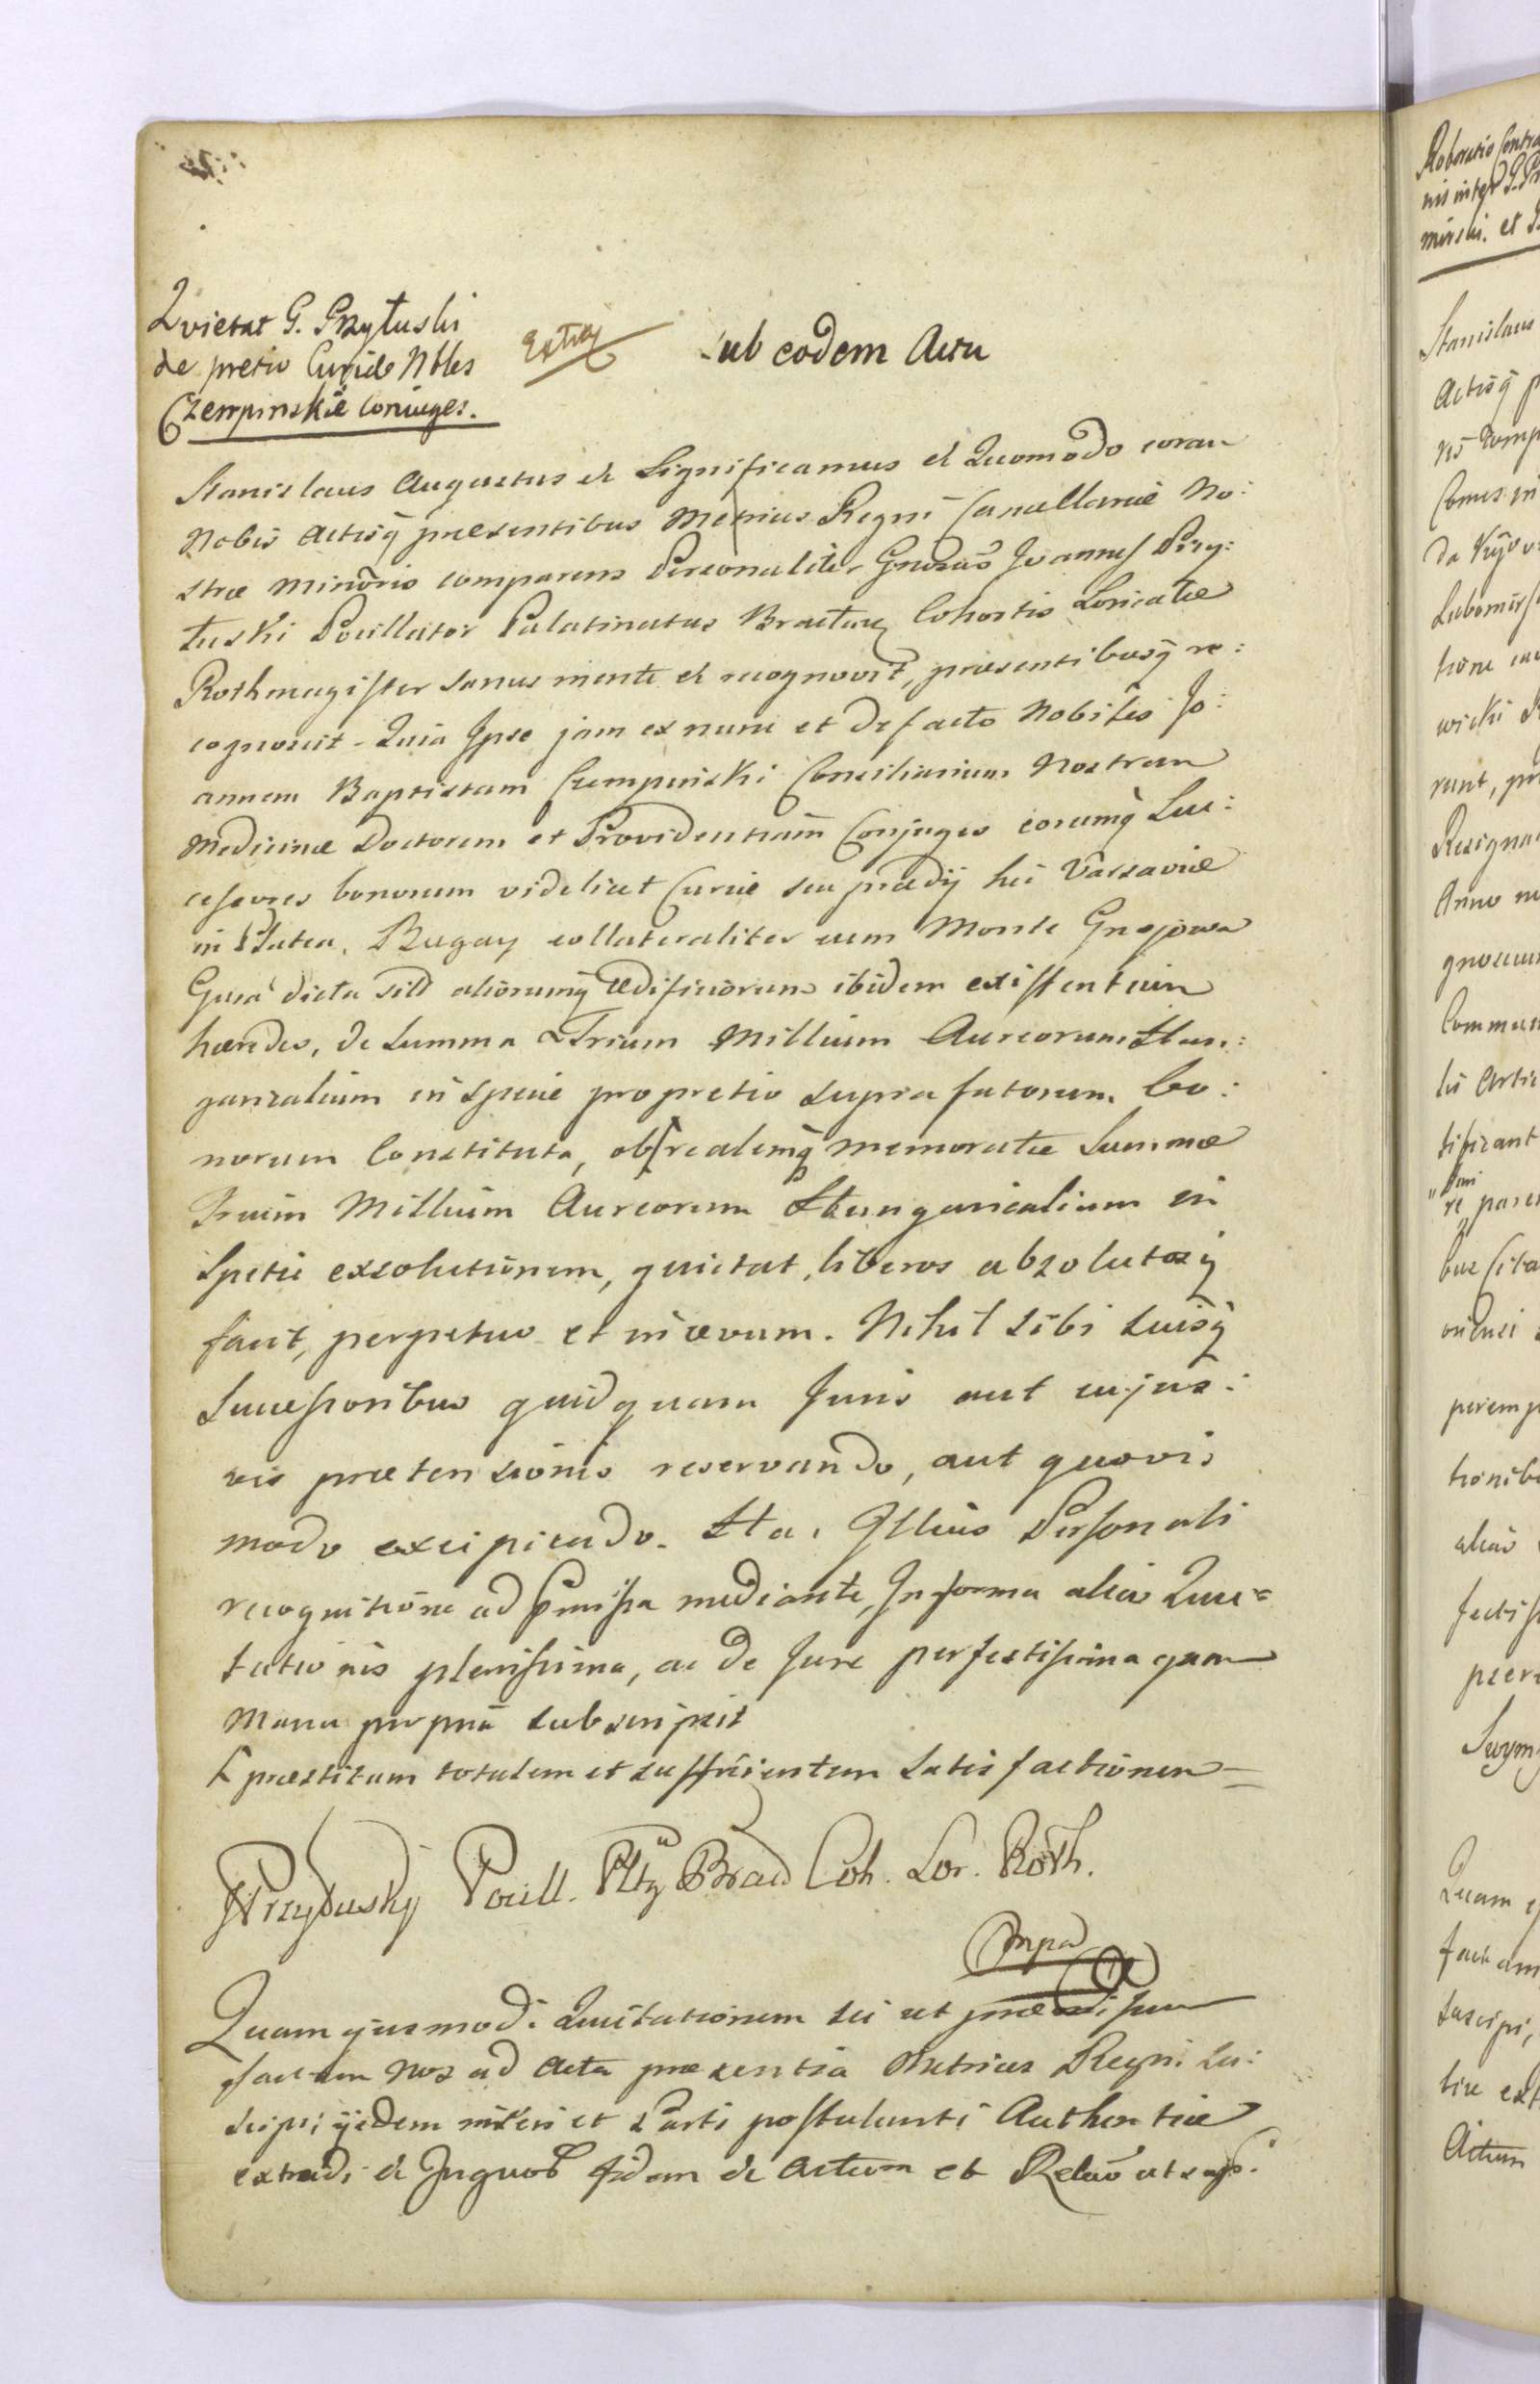 Quietat G. Przyłuski
de pretio Curiæ Nbles
Czempinskie Coniuges.
Extra
Sub eodem Actu
Stanislaus Augustus &c Significamus &c Quomodo coram
Nobis Actisq̃ præsentibus Metrices Regni Cancellariæ No:
stræ Minoris comparens Personaliter Gnrosus Joannes Przy:
łuski Pocillator Palatinatus Bracłav Cohortis Loricatæ
Rothmagister sanus mente &c recognovit, præsentibusq̃ re:
cognoscit. Quia Ipse jam ex nunc et de facto Nobiles Jo:
annem Baptistam Czempinski Consiliarium Nostrum
Medicinæ Doctorem et Providentiam Conjuges eorumq̃ Suc:
cessores bonorum videlicet Curiæ seu prædij hic Varsaviæ
in Platea Bugay collateraliter cum Monte Gnojowa
Gura dicta siti aliorumq̃ ædificiorum ibidem existentium
hæredes, de Summa Trium Millium Aureorum Hun:
garicalium in specie pro pretio supra fatorum bo:
norum Constituta, ob realemq̃ memoratæ Summæ
Trium Millium Aureorum Hungaricalium in
Specie exsolutionem, quietat, liberos absolutosq̃
facit, perpetuo et in ævum. Nihil sibi suisq̃
Successoribus quidquam Juris aut cujus:
vis prætensionis reservando, aut quovis
modo excipiendo. Sta. Illius Personali
recognitione ad Præmissa mediante, In forma alias Quie=
tationis plenissima, ac de Jure perfectissima quam
Manu propria subscripsit
præstitam totalem et sufficientem Satisfactionem =
JPrzyłusky Pocill. Pltg Brac Coh. Lor. Roth.
mpa
Quam ejusmodi Quietationem sic ut præmissum
factam Nos ad Acta præsentia Metrices Regni sus:
scipi ijsdem inseri et Parti postulanti Authentice
extradi &c In quor fidem &c Actum et Relaō ut sup.
Roboratio Contra
nis inter G. Pr
mirski. et
Stanislaus
Actisq̃ p
ns Comp
Comes in
da Kijov
Lubomirs
tione
wicki
runt, pr
Resigna
Anno
gnoscun
Commun
lis Artic
tificant
bus Cita
peremp
tionib
alias
fectiss
Quam ej
factam
suscipi,
tice ext
Actum